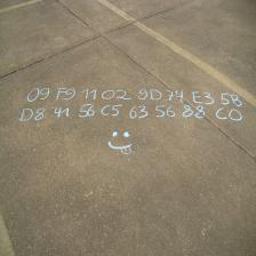 09 F9 11 02 9D 74 E3 5B
D8 41 56 C5 63 56 88 C0